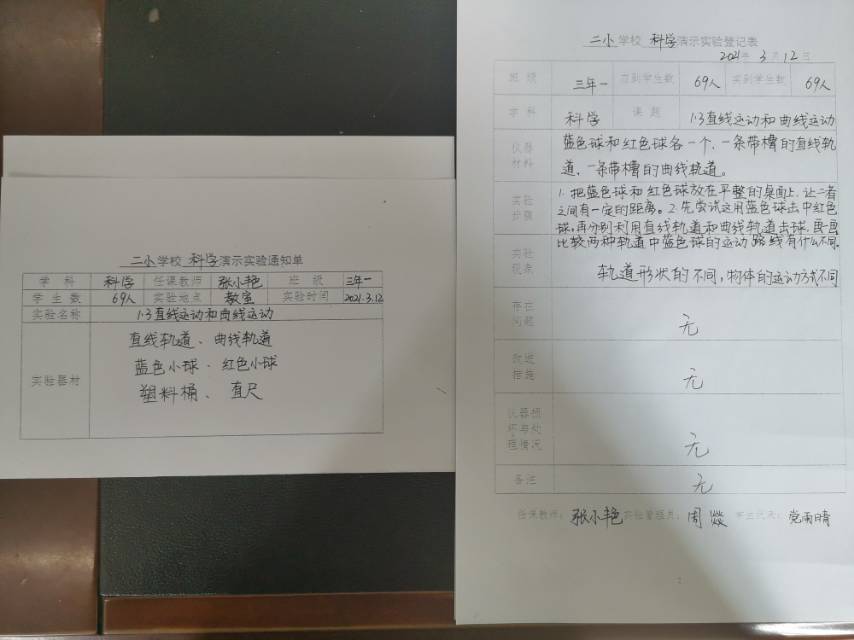 二小学校 科学演示实验通知单
学科 科学 任课教师 张小艳 班级 三年一
学生数 69人 实验地点 教室 实验时间 2021.3.12
实验名称 1·3直线运动和曲线运动
实验器材
直线轨道、曲线轨道
蓝色小球、红色小球
塑料桶、直尺
二小学校 科学演示实验登记表
2021年3月12日
班级 三年一 应到学生数 69人 实到学生数 69人
学科 科学 课题 1·3直线运动和曲线运动
仪器材料
蓝色球和红色球各一个、一条带槽的直线轨
道、一条带槽的曲线轨道。
实验步骤
1.把蓝色球和红色球放在平整的桌面上,让二者
之间有一定的距离。2.先尝试这用蓝色球击中红色
球,再分别利用直线轨道和曲线轨道击球,
比较两种轨道中蓝色球的运动路线有什么不同。
实验现象
轨道形状的不同,物体的运动方式不同
存在问题 无
改进措施 无
仪器损坏与处理情况 无
备注 无
任课教师:张小艳 实验管理员:周 学生代表:党雨晴